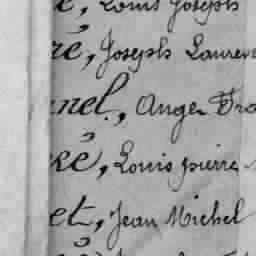 é, Louis Joseph
ré, Joseph Lauren
nel, Ange Fra
ké, Louis pierre
et, Jean Michel